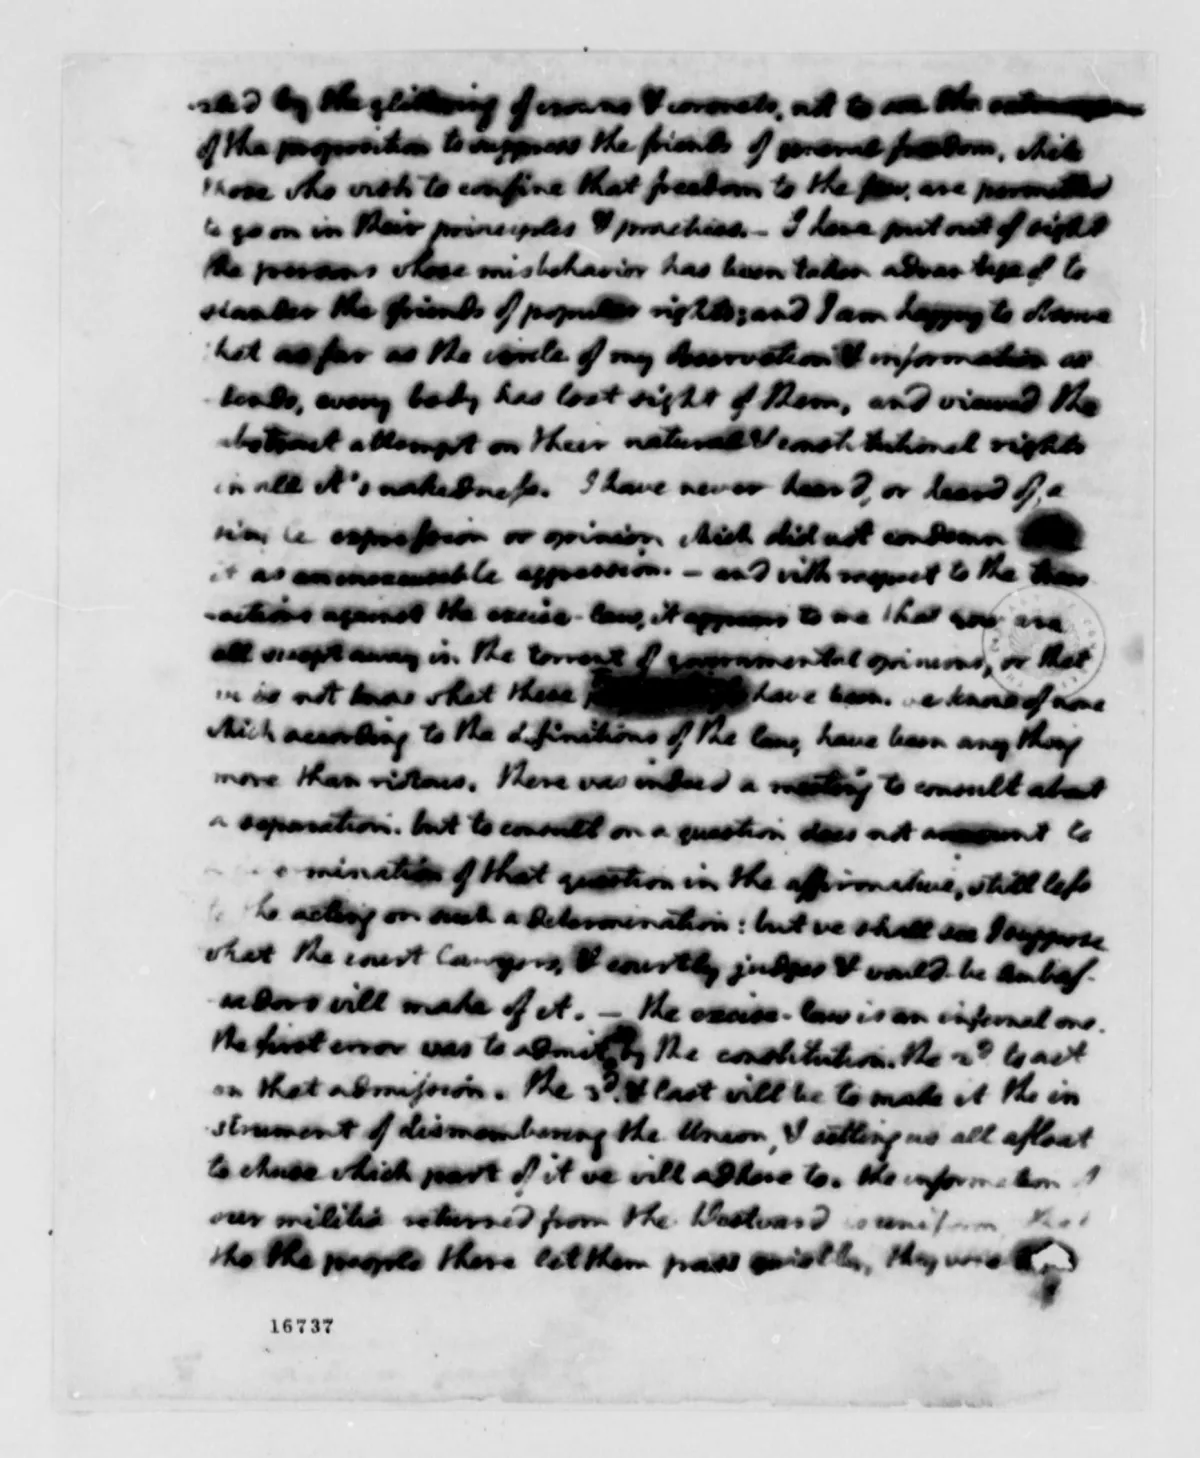 by the glittering of crowns & coronets, not to see the extravagance
of the proposition to suppress the friends of general freedom, while
those who wish to confine that freedom to the few, are permitted
to go on in their principles & practices. — I have put out of sight
the persons whose misbehavior has been taken advantage of to
slander the friends of popular rights; and I am happy to observe
that as far as the circle of my observation & information ex
tends, every body has lost sight of them, and viewed the
abstract attempt on their natural & constitutional rights
in all it's nakedness. I have never heard, or heard of, a
single expression or opinion which did not condemn
it as an inexcusable aggression. — and with respect to the trans
-actions against the excise-law, it appears to me that you are
all swept away in the torrent of governmental opinions, or that
we do not know what these have been. we know of none
which according to the definitions of the law, have been any thing
more than riotous. there was indeed a meeting to consult about
a separation. but to consult on a question does not amount to
a determination of that question in the affirmative, still less
to the acting on such a determination: but we shall see I suppose
what the court lawyers, & courtly judges & would-be Ambas-
sadors will make of it. — the excise-law is an infernal one.
the first error was to admit it by the constitution. the 2d. to act
on that admission. the 3d. & last will be to make it the in
strument of dismembering the Union, & setting us all afloat
to chuse which part of it we will adhere to. the information of
our militia returned from the Westward is uniform, that
tho the people there let them pass quietly, they were
16737